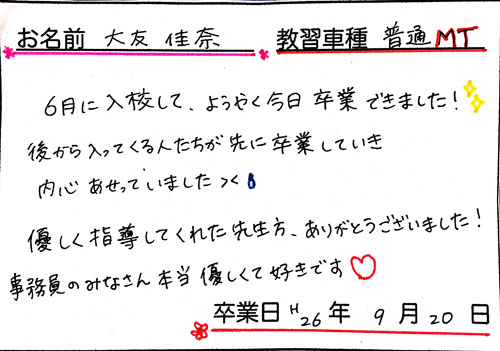 お名前 大友 佳奈 教習車種 普通MT
6月に入校して、ようやく今日卒業できました！
後から入ってくる人たちが先に卒業していき
内心あせっていました
優しく指導してくれた先生方、ありがとうございました！
事務員のみなさん本当優しくて好きです♡
卒業日 H26年 9月20日